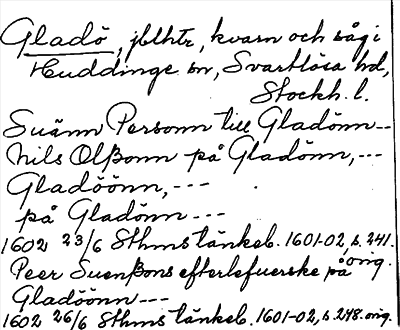 Gladö, jblhtr, kvarn och såg i
Huddinge sn, Svartlösa hd,
Stockh. l.
Suänn Personn till Gladönn--
Nils Olßonn på Gladönn,---
Gladöönn,---
på Gladönn ---
1602 23/6 Sthms tänkeb. 1601-02, s. 241. orig.
Peer Suenßons efterlefuerske på
Gladöönn---
1602 26/6 Sthms tänkeb. 1601-02, s. 248. orig.